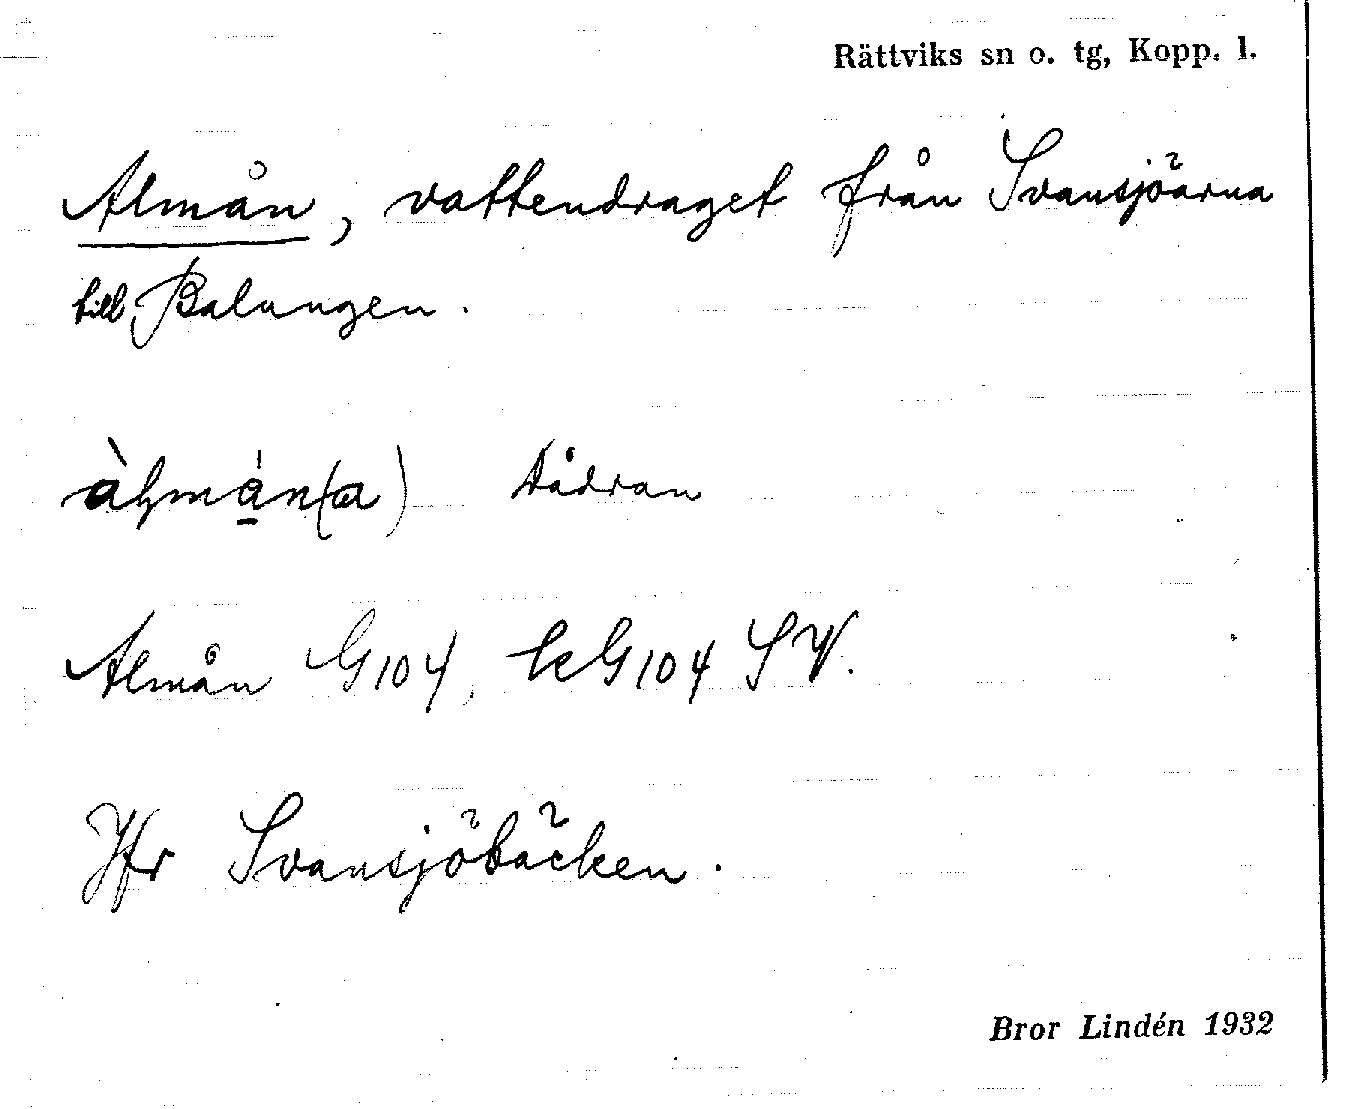 Rättviks sn o. tg, Kopp. l.
Almån, vattendraget från Svansjöarna
till Balungen.
Dådran
Almån G104, kG104 SV.
Jfr Svansjöbäcken.
Bror Lindén 1932